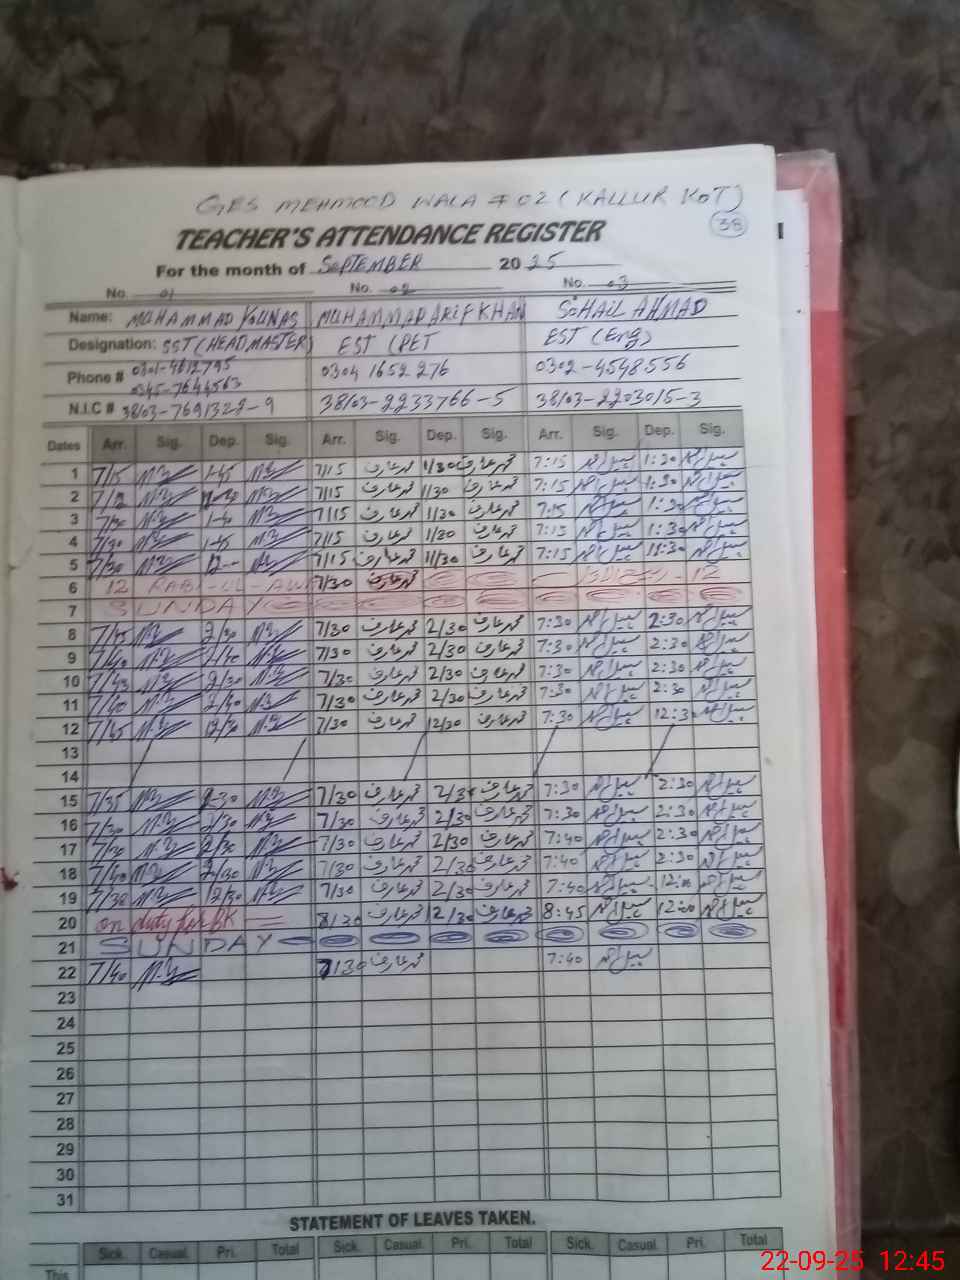 GES MEHMOOD WALA # 02 (KALLUR KOT)
38
TEACHER'S ATTENDANCE REGISTER
For the month of SEPTEMBER 2025
No. 01 No. 02 No. 03
Name: MUHAMMAD YOUNAS MUHAMMAD ARIF KHAN SOHAIL AHMAD
Designation: SST (HEADMASTER) EST (PET EST (Eng)
Phone # 0301-4612795 0304 1652276 0302-4548556
0345-7644563
N.I.C # 38103-7691328-9 38103-2233766-5 38103-2203015-3
Dates Arr. Sig. Dep. Sig. Arr. Sig. Dep. Sig. Arr. Sig. Dep. Sig.
1 7/15 1-45 7/15 محمد عارف 1/30 محمد عارف 7:15 سہیل احمد 1:30 سہیل احمد
2 7/15 محمد عارف 1/30 محمد عارف 7:15 سہیل احمد 1:30 سہیل احمد
3 1-40 7/15 محمد عارف 1/30 محمد عارف 7:15 سہیل احمد 1:30 سہیل احمد
4 7/20 1-45 7/15 محمد عارف محمد عارف 7:15 سہیل احمد 1:30 سہیل احمد
5 7/20 7/15 محمد عارف 11/30 محمد عارف 7:15 سہیل احمد 11:30 سہیل احمد
6 12 RABI-UL-AW 7/30 محمد عارف 12
7 SUNDAY
8 7/45 2/30 7/30 محمد عارف 2/30 محمد عارف 7:30 سہیل احمد 2:30 سہیل احمد
9 7/40 2/40 7/30 محمد عارف 2/30 محمد عارف 7:30 سہیل احمد 2:30 سہیل احمد
10 7/45 2/30 7/30 محمد عارف 2/30 محمد عارف 7:30 سہیل احمد 2:30 سہیل احمد
11 7/40 2/40 7/30 محمد عارف 2/30 محمد عارف 7:30 سہیل احمد 2:30 سہیل احمد
12 7/45 12/30 7/30 محمد عارف 12/30 محمد عارف 7:30 سہیل احمد 12:3 سہیل احمد
13
14
15 7/35 2-30 7/30 محمد عارف 2/30 محمد عارف 7:30 سہیل احمد 2:30 سہیل احمد
16 7/30 2/30 7/30 محمد عارف 2/30 محمد عارف 7:30 سہیل احمد 2:30 سہیل احمد
17 7/30 2/30 7/30 محمد عارف 2/30 محمد عارف 7:40 سہیل احمد 2:30 سہیل احمد
18 7/40 2/30 7/30 محمد عارف 2/30 محمد عارف 7:40 سہیل احمد 2:30 سہیل احمد
19 7/38 12/30 7/30 محمد عارف 2/30 محمد عارف 7:40 سہیل احمد 12:00 سہیل احمد
20 on duty for BK 8/30 محمد عارف 12/30 محمد عارف 8:45 سہیل احمد 12:00 سہیل احمد
21 SUNDAY
22 7/40 7/30 محمد عارف 7:40 سہیل احمد
23
24
25
26
27
28
29
30
31
STATEMENT OF LEAVES TAKEN.
Sick. Casual. Pri. Total Sick. Casual. Pri. Total Sick. Casual. Pri. Total
This
22-09-25 12:45